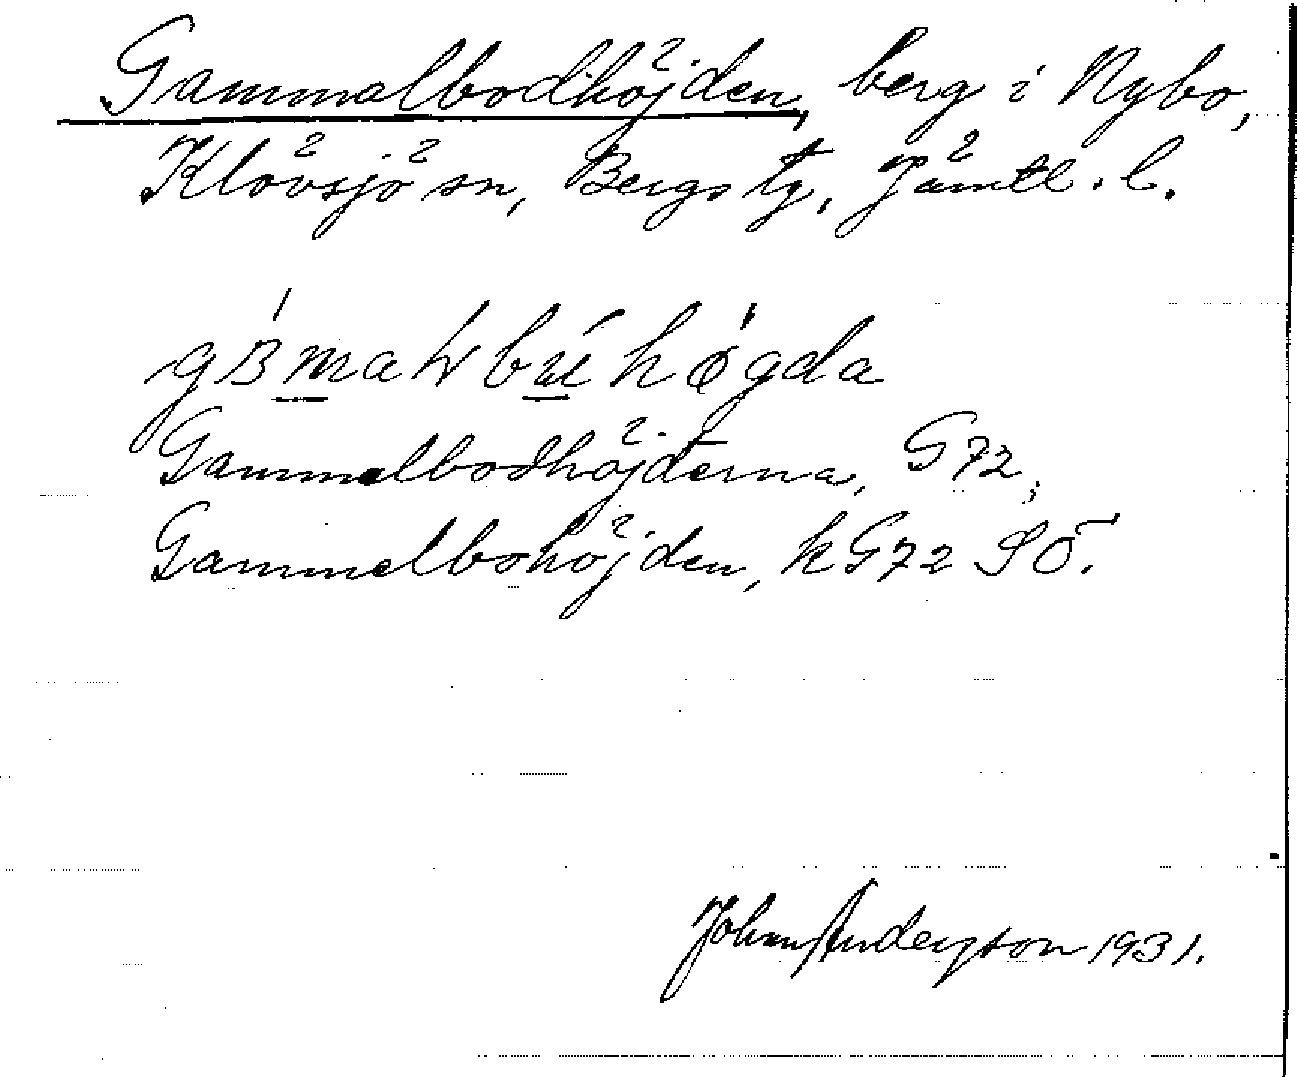 Gammalbodhöjden, berg i Nybo,
Klövsjö sn, Bergs tg, Jämtl. l.
Gammelbodhöjderna, G72;
Gammelbohöjden, kG72 SO.
Johan Andersson 1931.